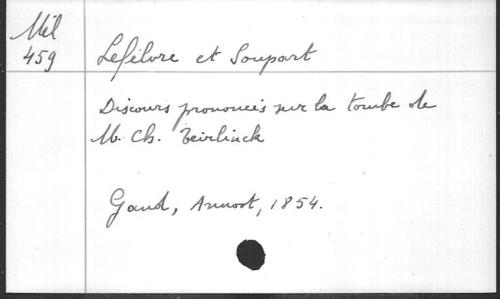 Mél
459
Lefèbvre et Soupart
Discours prononcés sur la tombe de
M. Ch. Teirlinck
Gand, Annoot, 1854.